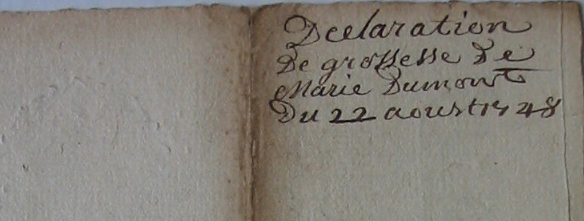 Dcelaration
De grossesse De
Marie Dumont
Du 22 aoust 1748